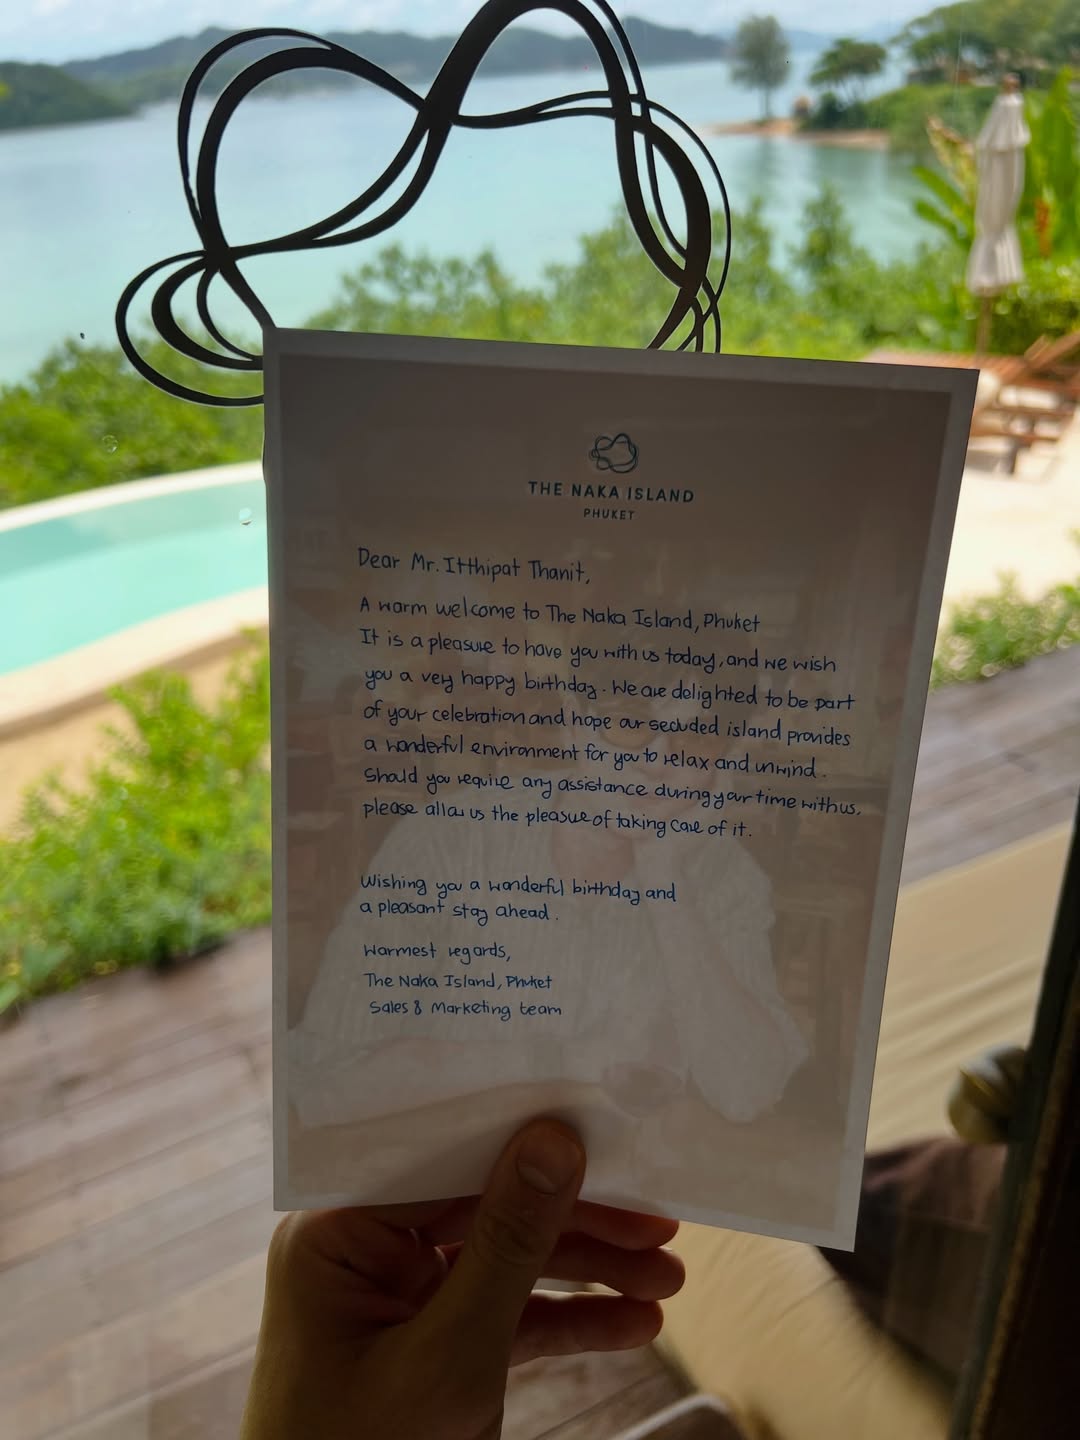 THE NAKA ISLAND
PHUKET
Dear Mr. Itthipat Thanit,
A warm welcome to The Naka Island, Phuket
It is a pleasure to have you with us today, and we wish
you a very happy birthday. We are delighted to be part
of your celebration and hope our secluded island provides
a wonderful environment for you to relax and unwind.
Should you require any assistance during your time with us,
please allow us the pleasure of taking care of it.
Wishing you a wonderful birthday and
a pleasant stay ahead.
Warmest regards,
The Naka Island, Phuket
Sales & Marketing team